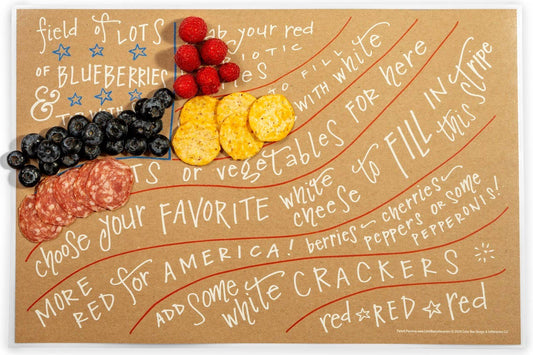 field of LOTS
of BLUEBERRIES
&
ab your red
OTIC
TO FILL
WITH white
TS or vegetables FOR here
choose your FAVORITE white cheese to FILL IN this stripe
MORE RED for AMERICA! berries - cherries - peppers or some PEPPERONIS!
ADD some white CRACKERS
red ☆ RED ☆ red